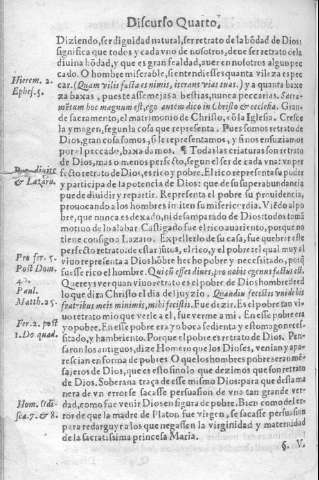 Discurso Quarto,
Diziendo, ser dignidad natural, ser retrato de la bõdad de Dios:
significa que todos y cada vno de nosotros, deue ser retrato cela
diuina bõdad, y que es gran fealdad, auer en nosotros algun pe-
cado. O hombre miserable, si entendiesses quanta vileza es pe-
car. (Quam vilis facta es nimis, iterans vias tuas.) y a quanta baxe
za baxas, pueste assemejas a bestias, nunca peccarias. Sacra-
mẽtum hoc magnum est, ego autem dico in Christo & ecclesia. Gran
de sacramento, el matrimonio de Christo, cõ la Iglesia. Cresce
la ymagen, segun la cosa que representa. Pues somos retrato de
Dios, gran cosa somos, si le representamos, y si nos ensuziamos
por el peccado, baxa damos. ¶ Todas las criaturas son retrato
de Dios, mas o menos perfecto, segun el ser de cada vna: vn per-
fecto retrato de Dios, es rico y pobre. El rico representa su poder
y participa de la potencia de Dios: que de su superabundancia
puede diuidir y repartir. Representa el pobre su prouidencia,
prouocando a los hombres in itero su misericordia. Viẽdo al po
bre, que nunca es dexado, ni desamparado de Dios: todos tomã
motiuo de loalabar. Castigado fue el rico auariento, porque no
tiene consigo a Lazaro. Expellerlo de su casa, fue quebrar este
perfecto retrato de estas jũtas, el rico, y el pobre: el qual muy al
viuo representa a Dios hõbre hecho pobre y necessitado, porq̃
fuesse rico el hombre. Qui cũ esset diues, pro nobis egenus factus est.
Quereys ver quan viuo retrato es el pobre de Dios hombre: ved
lo que dirá Christo el dia del juyzio. Quandiu fecistis vni de his
fratribus meis minimis, mihi fecistis. Fue dezir. Es el pobre tan vi-
uo retrato mio que verle a el, fue verme a mi. En esse pobre era
yo pobre. En esse pobre era yo boca sedienta y estomago neces-
sitado, y hambriento. Porque el pobre es retrato de Dios. Pen-
saron los antiguos, dize Homero que los Dioses, venian y apa-
rescian en forma de pobres. O que los hombres pobres eran mẽ-
sajeros de Dios, que es esto sino lo que dezimos que son retrato
de Dios. Soberana traça de esse mismo Dios para que desta ma
nera de vn error se sacasse persuasion de vna tan grande ver-
dad, como fue venir Dios en figura de pobre. Bien como del er-
ror de que la madre de Platon fue virgen, se sacasse persuasion
para redarguyr a los que negassen la virginidad y maternidad
de la sacratissima princesa Maria.
§. V.
Hierem. 2.
Ephes. 5.
& Lazaru.
Pro fer. 5.
Post Dom.
4.
Paul.
Matth. 25.
Fer. 2. post
1. Do quad.
Hom. Odi-
sea. 7. & 8.